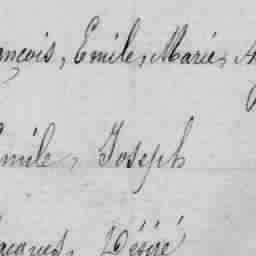 ançois, Emile, Marie, A
mile, Joseph
acques, Désiré